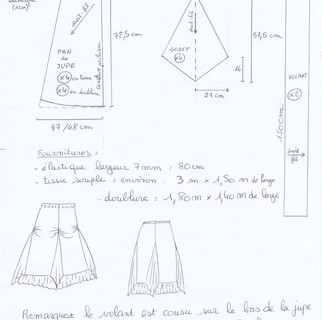 (1cm)
droit-fil
72,5 cm
PAN
de
JUPE
x4 en tissu
x4 en doublure
47/48cm
GODET
x4
droit-fil
57,5cm
16
21 cm
VOLANT
x2
150cm
droit
fil
Fournitures :
- élastique largeur 7mm = 80cm
- tissu souple = environ 3 m x 1,50 m de large
- doublure = 1,80m x 1,40 m de large
Remarques le volant est cousu sur le bas de la jupe